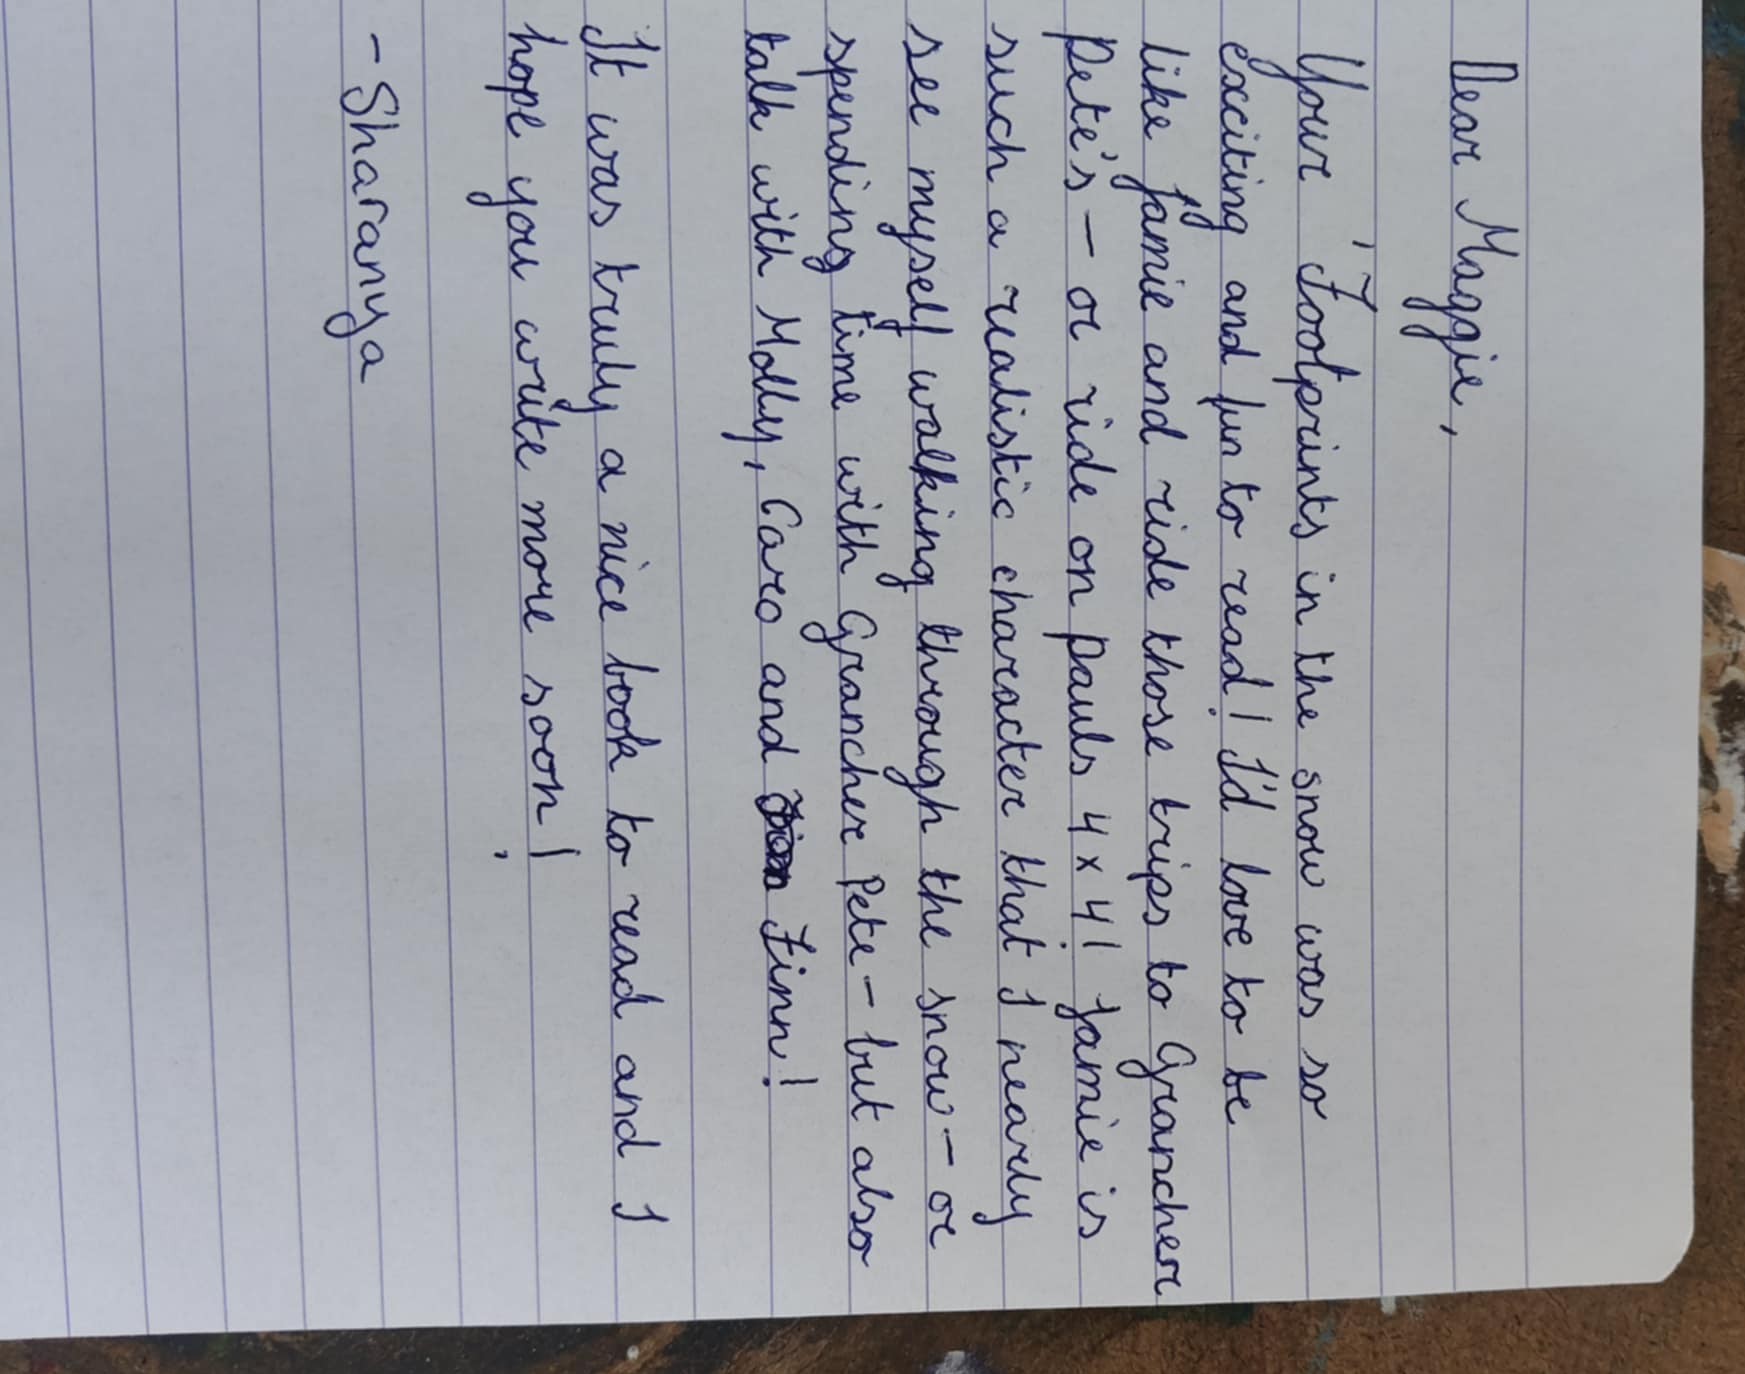 Dear Maggie,
Your 'Footprints in the snow was so
exciting and fun to read! I'd love to be
like Jamie and ride those trips to Grancher
Pete's - or ride on Pauls 4x4! Jamie is
such a realistic character that I nearly
see myself walking through the snow - or
spending time with Grancher Pete - but also
talk with Molly, Caro and Finn!
It was truly a nice book to read and I
hope you write more soon!
- Sharanya